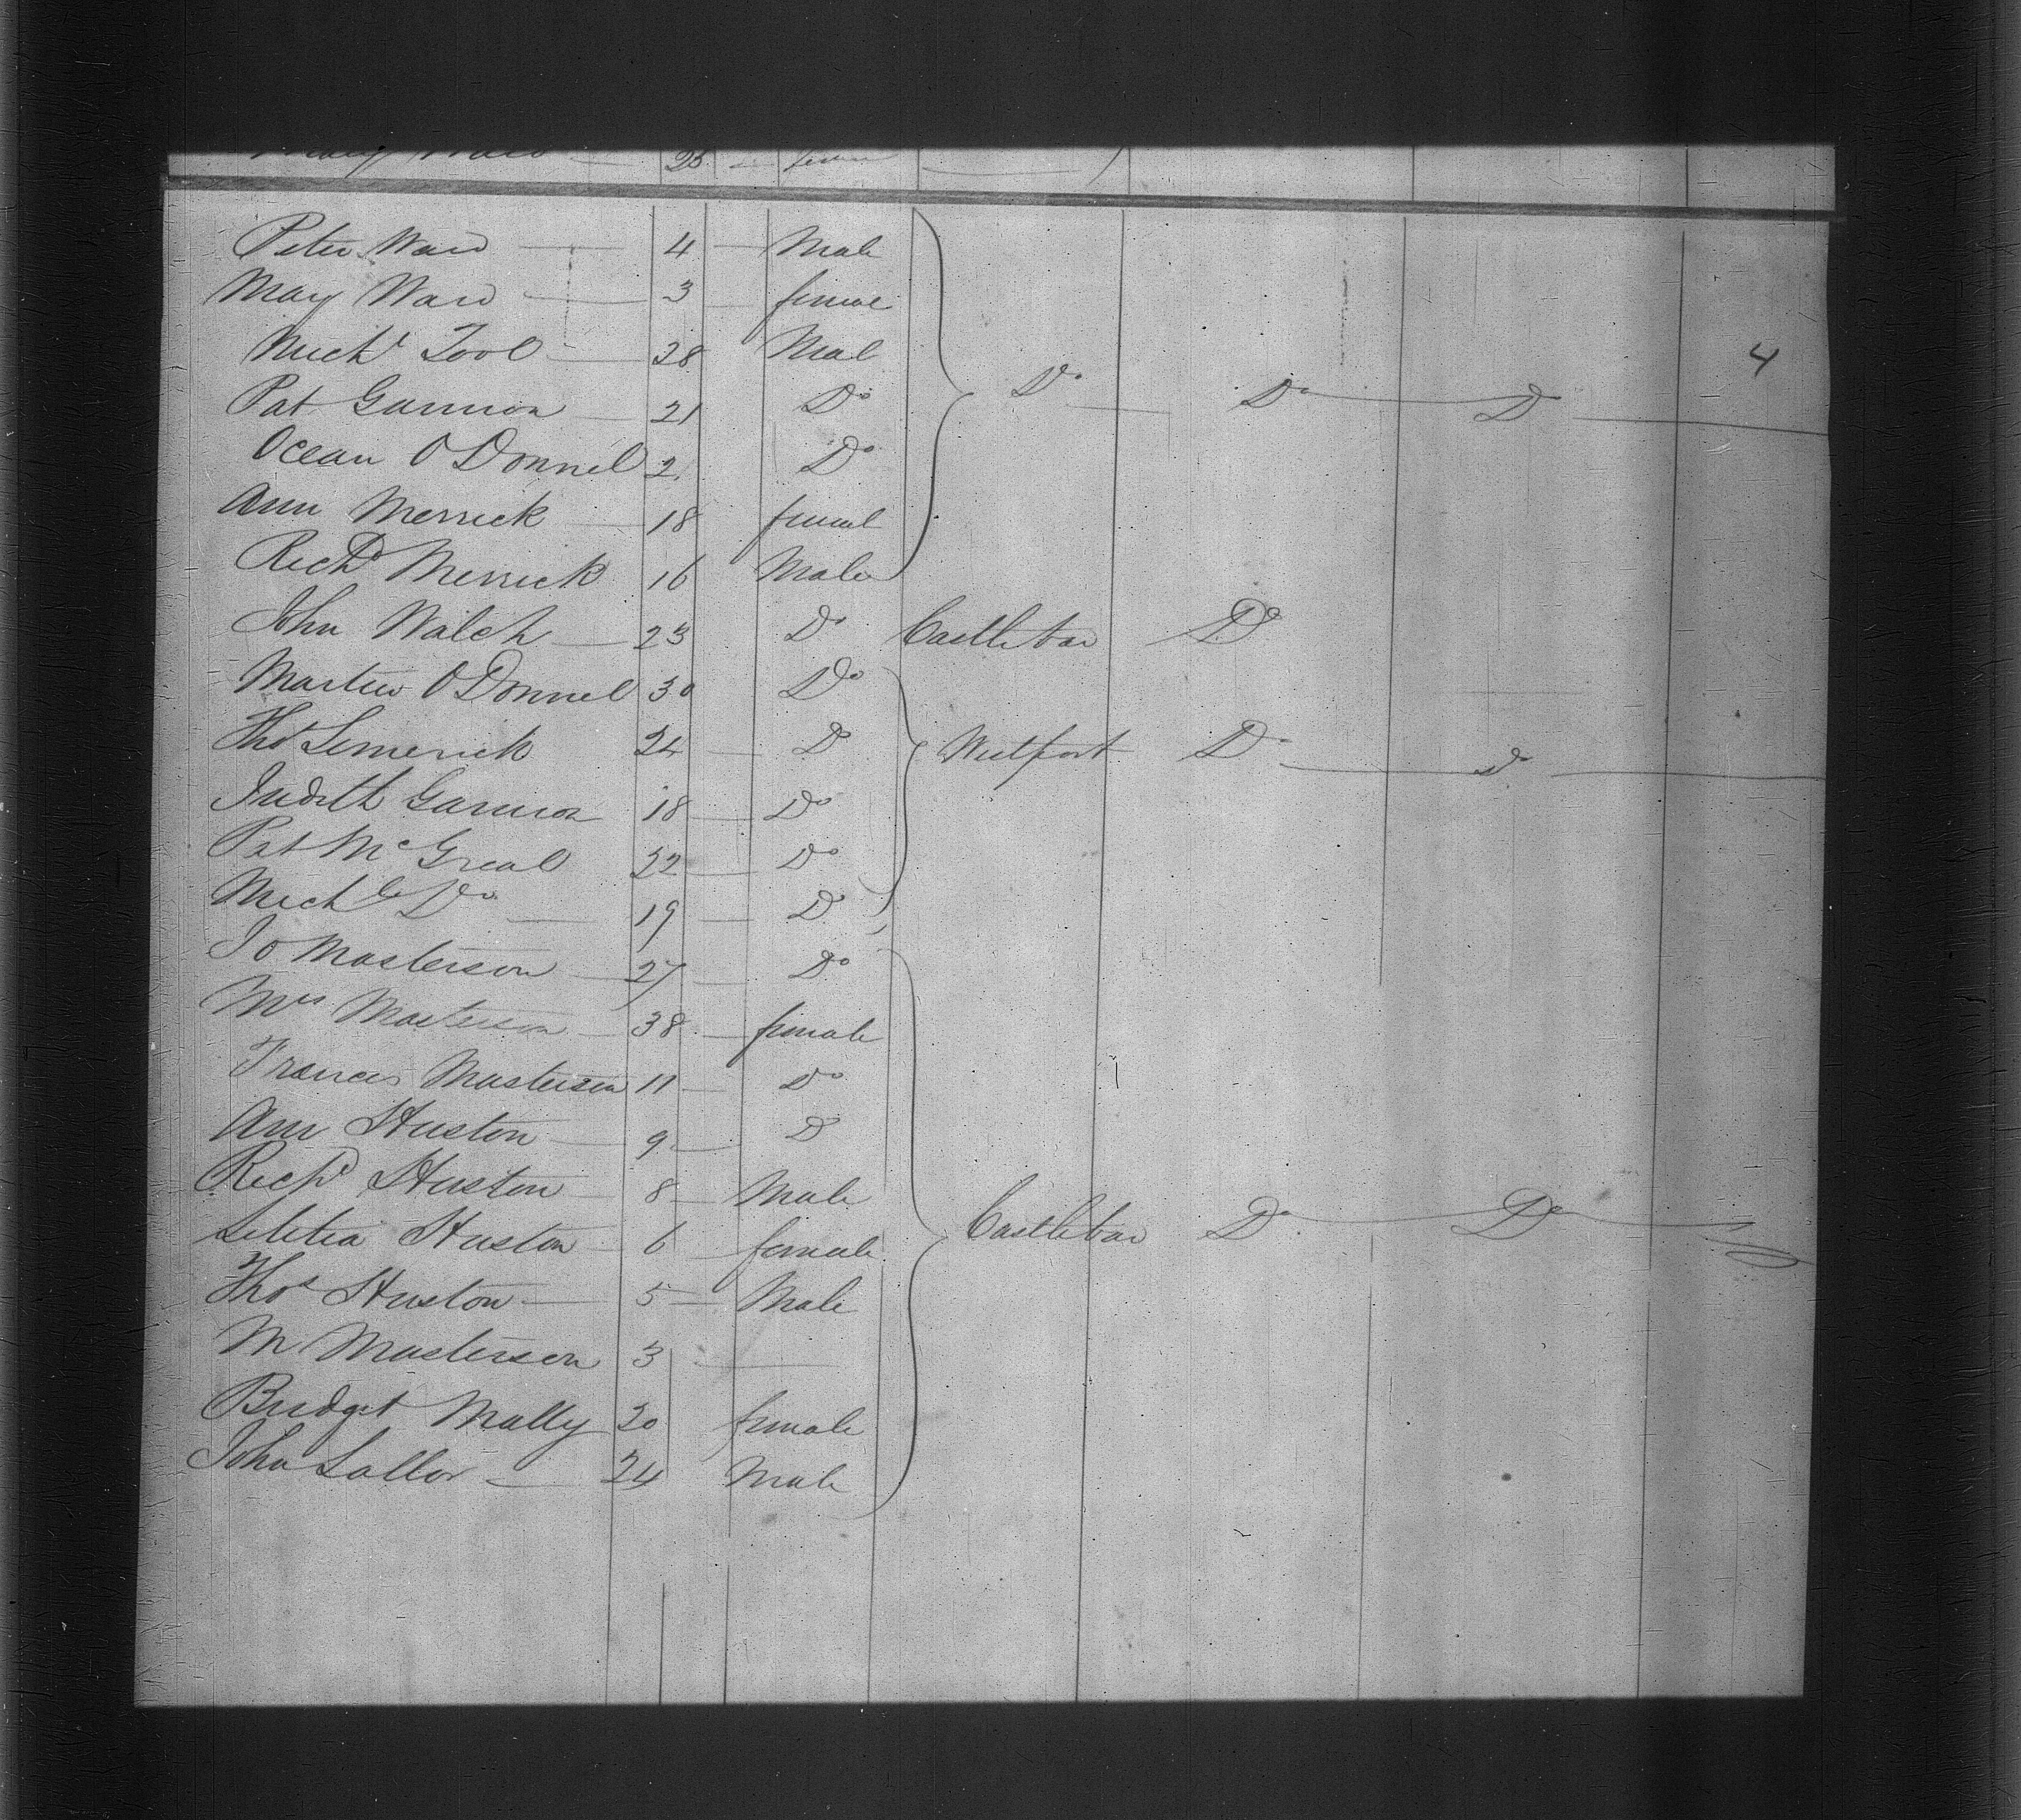 Mary Ward 26 female
Peter Ward 4 Male
Mary Ward 3 female
Mich^l Tool 28 Mal
Pat Gannon 21 D^o D^o D^o D^o 4
Ocean O Donnel 2 D^o
Ann Merrick 18 femal
Rich^d Merrick 16 Male
John Walch 23 D^o Castlebar D^o
Martin O Donnel 30 D^o
Tho^s Limerick 24 D^o Westport D^o D^o
Judith Gannon 18 D^o
Pat M^c Greal 22 D^o
Mich^l D^o 19 D^o
Jo Masterson 27 D^o
M^rs Masterson 38 female
Frances Masterson 11 D^o
Ann Huston 9 D^o
Rich^d Huston 8 Male
Letitia Huston 6 female Castlebar D^o D^o
Tho^s Huston 5 Male
M Masterson 3
Bridget Mally 20 female
John Lallor 24 Male